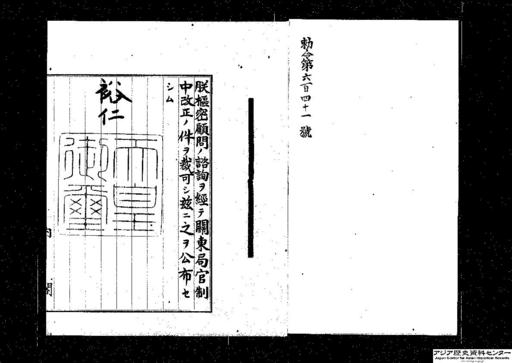 勅令第六百四十一號
朕樞密顧問ノ諮詢ヲ經テ關東局官制
中改正ノ件ヲ裁可シ玆ニ之ヲ公布セ
シム
裕仁
天皇
御璽
内閣
アジア歴史資料センター
Japan Center for Asian Historical Records